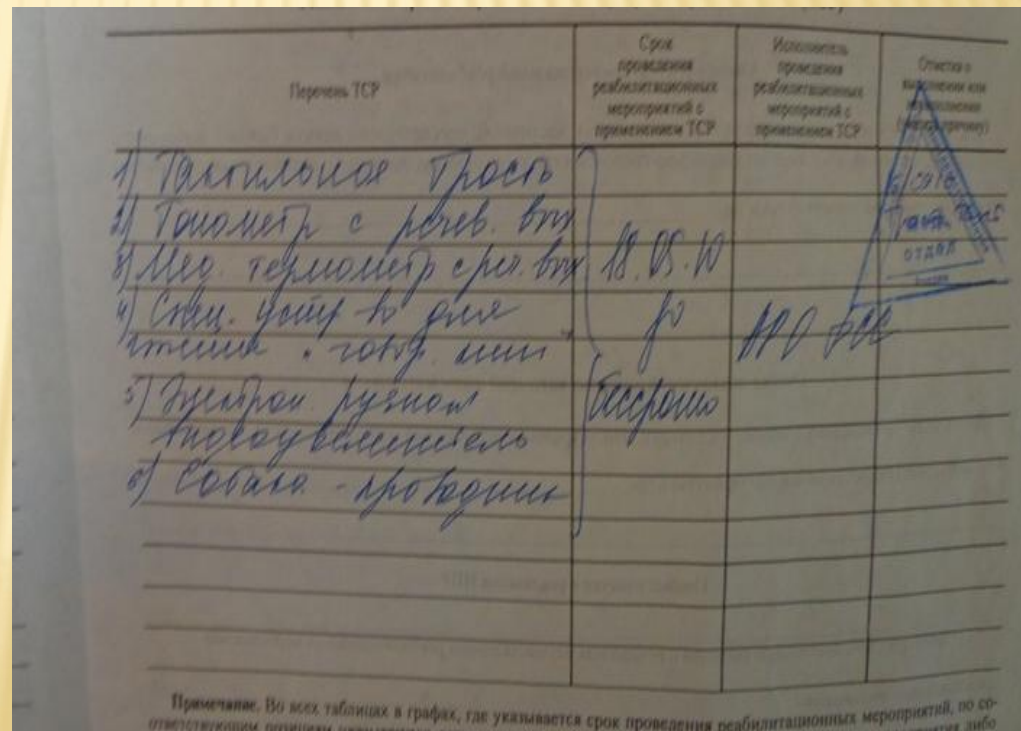 Перечень ТСР
Срок
проведения
реабилитационных
мероприятий с
применением ТСР
Исполнитель
проведения
реабилитационных
мероприятий с
применением ТСР
Отметка о
выполнении или
невыполнении
(указать причину)
1) Тактильная трость
2) Тонометр с речев. вых
3) Мед. термометр с реч. вых
4) Спец. устр-во для
чтения "говор. книг"
5) Электрон. ручной
видеоувеличитель
6) Собака - проводник
18.05.10
до
бессрочно
отдел
Примечание. Во всех таблицах в графах, где указывается срок проведения реабилитационных мероприятий, по со-
ответствующим позициям